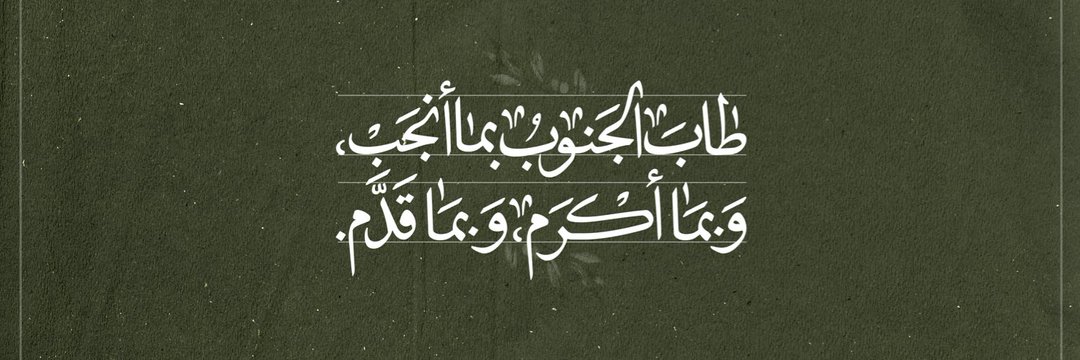 طابَ الجَنوبُ بما أنجَبْ،
وَبمَا أكْرَم، وَبمَا قَدَّم.